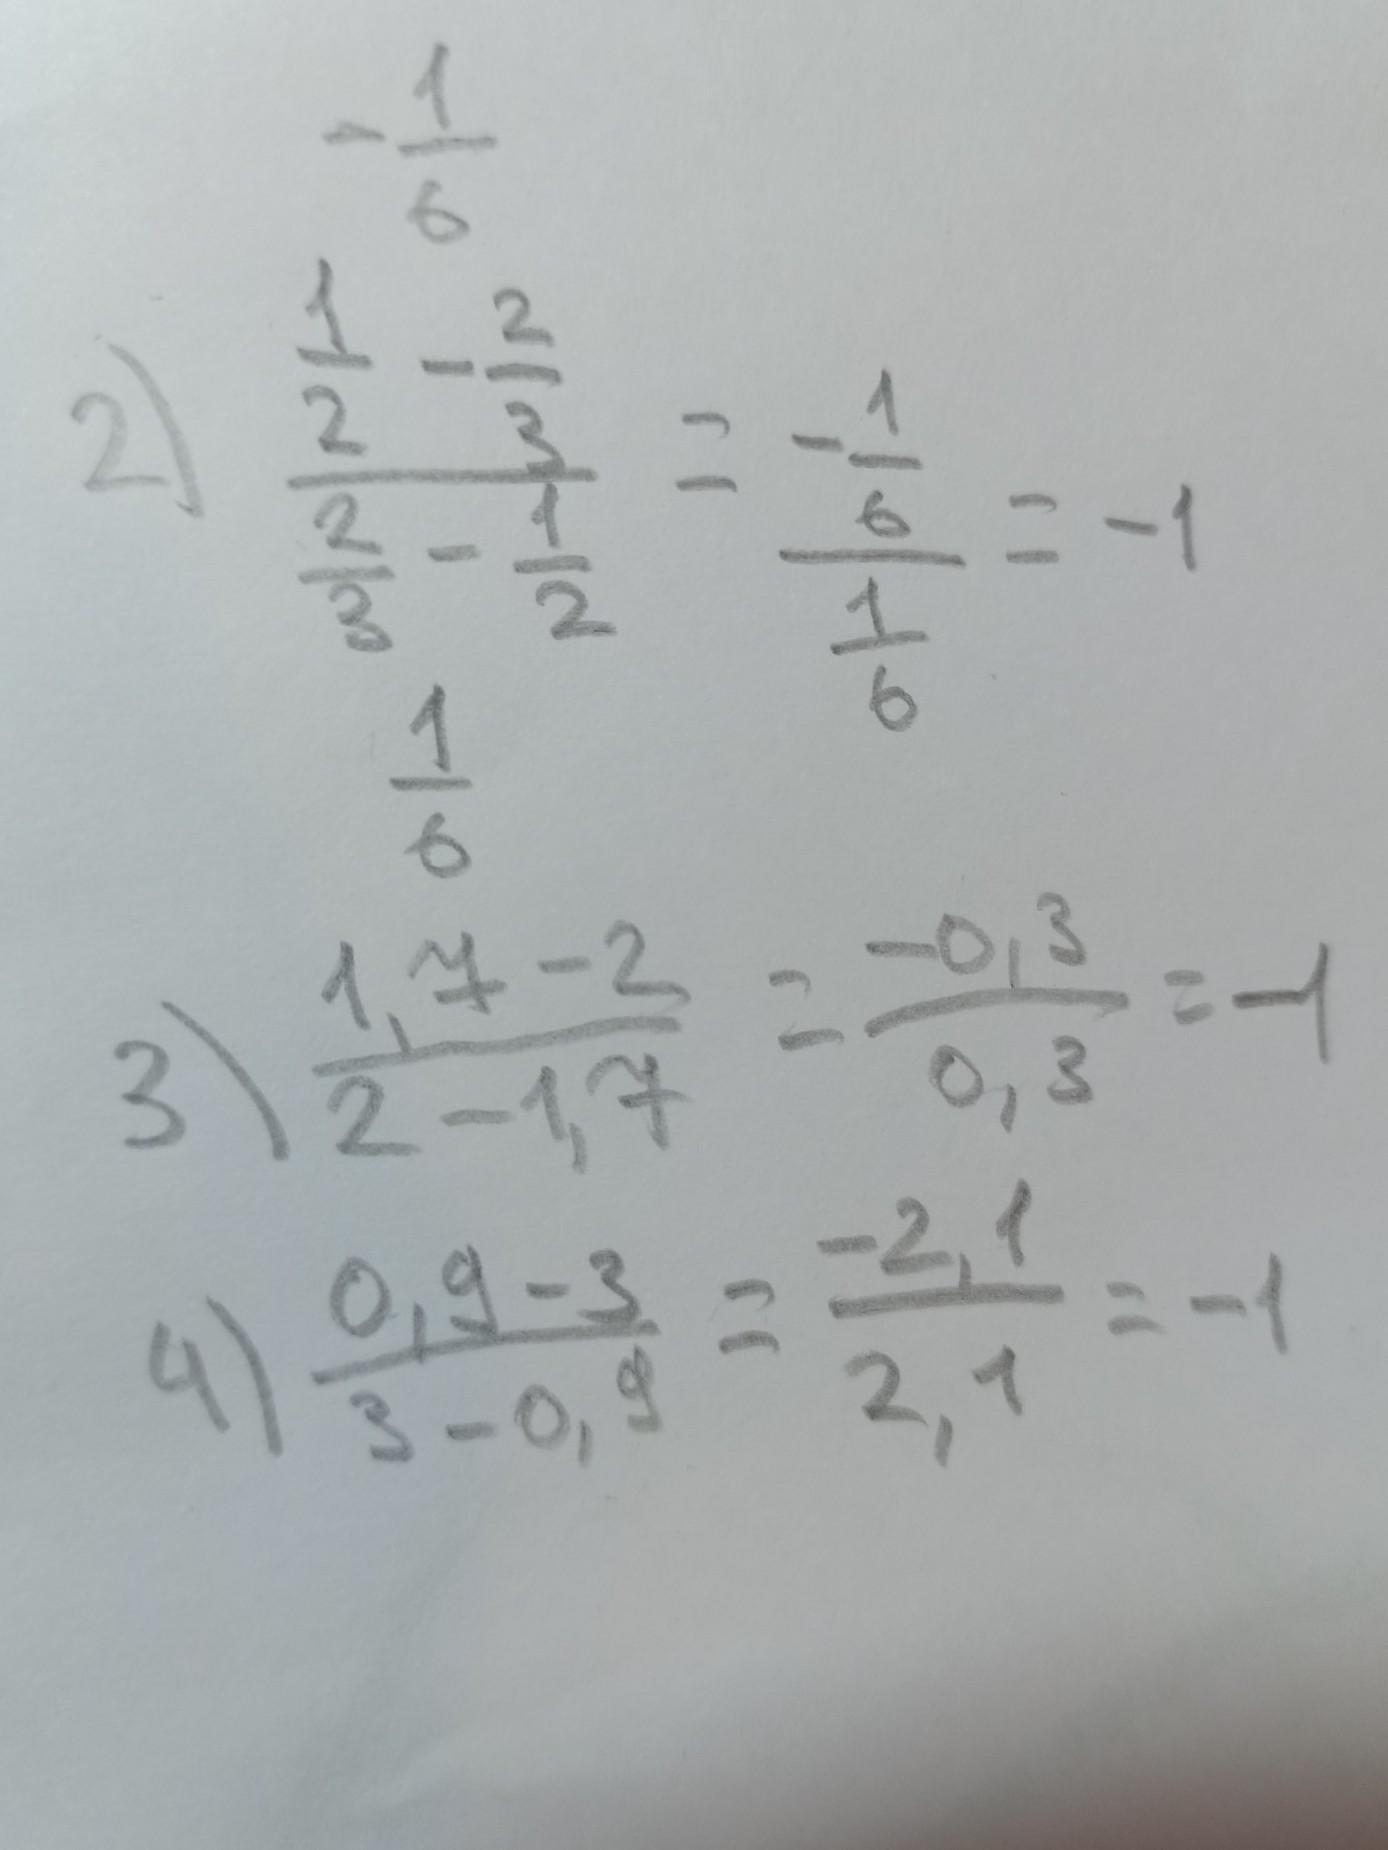 -1/6
2) (1/2 - 2/3)/(2/3 - 1/2) = (-1/6)/(1/6) = -1
1/6
3) (1,7 - 2)/(2 - 1,7) = (-0,3)/(0,3) = -1
4) (0,9 - 3)/(3 - 0,9) = (-2,1)/(2,1) = -1